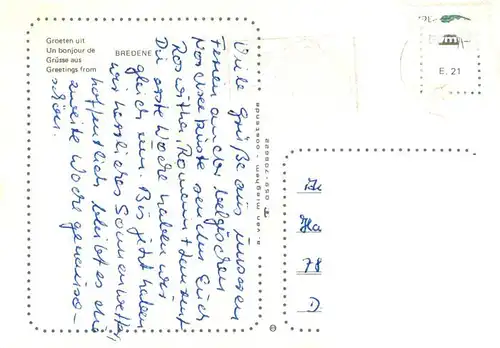 Groeten uit
Un bonjour de
Grüsse aus
Greetings from
BREDENE
Viele Grüße aus unseren
Ferien an der belgischen
Nordseeküste senden Euch
Roswitha, Romann +
Die erste Woche haben wir
gleich um. Bis jetzt haben
wir herrliches Sonnenwetter,
hoffentlich bleibt es die
zweite Woche genauso
schön.
E. 21
Ha
78
D